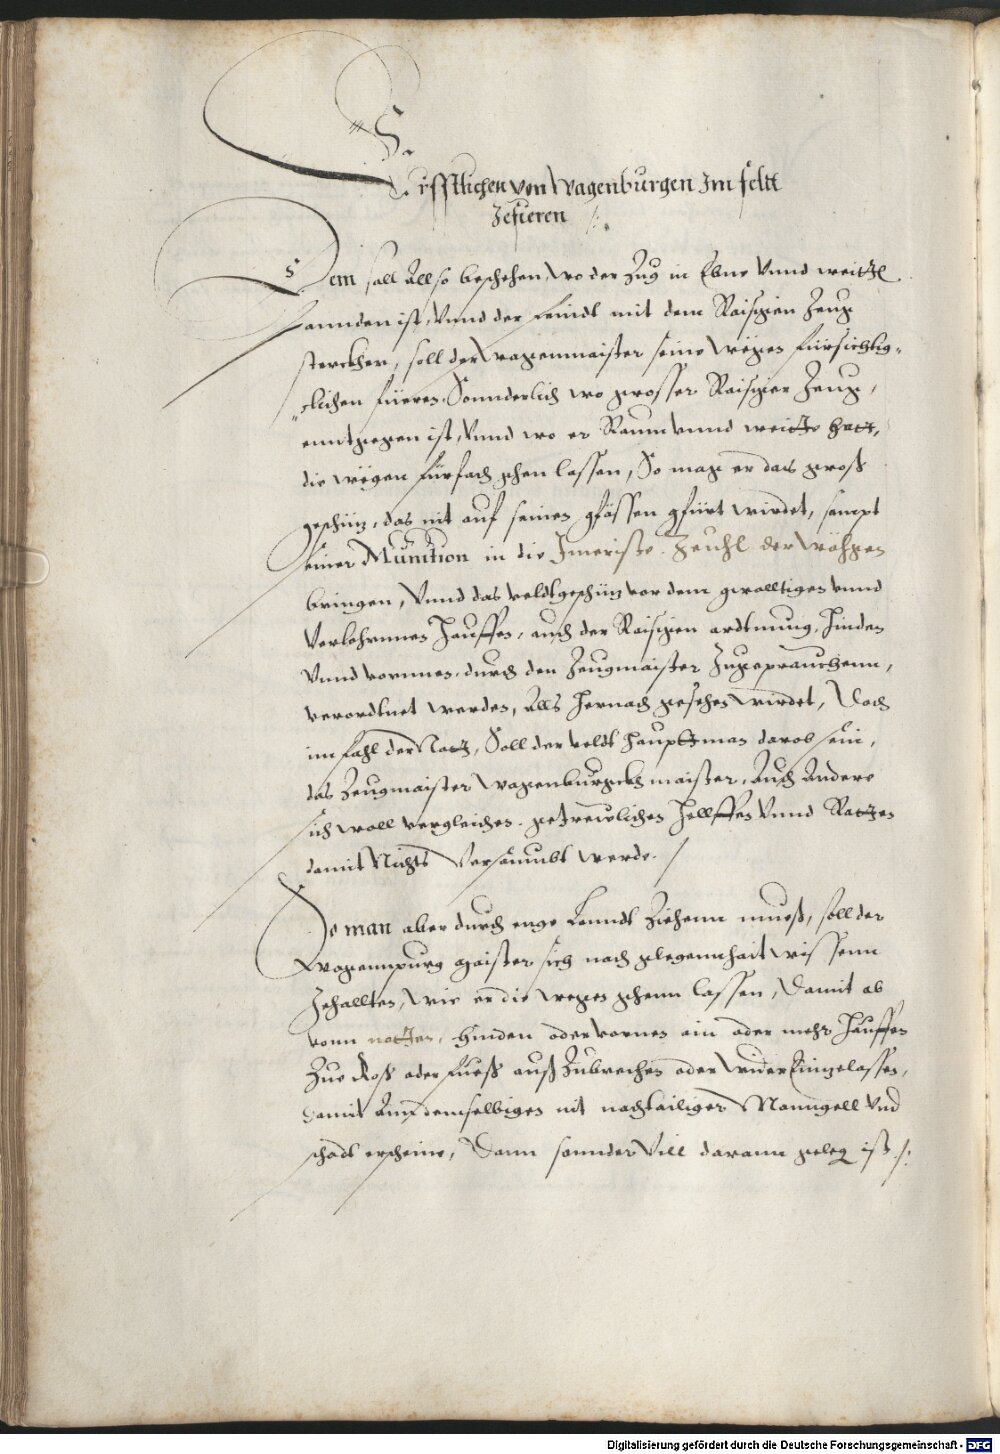 Erstlichen von Wagenburgen Im feltt
Zefieren
Dem soll Allso beschehen, wo der Zug in Ebne Vnnd weittl
Lannden ist, Vnnd der Feindt mit dem Raisigen Zeug
sterckher, soll der Wagenmaister seine Wegen fürsichtig-
clichen füeren. Sonnderlich wo grosser Raisiger Zeug,
enntgegen ist, Vnnd wo er Raum vnnd weitte hatt,
die wëgen fürfach gehen lassen, So mag er das groß
geschüz, das nit auf seinen gfässen gfürt wirdet, sampt
seiner Munition in die Jneriste Zeuhl der Wägen
bringen, Vnnd das veldtgeschüz vor dem gwalltigen vnnd
Verlohrnnen Hauffen, auch der Raisigen ordtnung, Hinden
Vnnd vornnen, durch den Zeugmaister Zugeprauchenn,
verordtnet werden, Alls Hernach gesehen wirdet, Doch
im fahl der Nott, Soll der veldt Hauptman darob sein,
das Zeugmaister Wagenburgckh maister, Auch Andere
sich woll vergleichen. getrewlichen Hellffen Vnnd Ratten
damit Nichts Versäumbt werde. /
So man aber durch enge Lanndt Ziehenn mueß, soll der
Wagennpurg Maister sich nach glegennhait wissenn
Zehallten, wie er die wegen gehenn lassen, Damit ob
vonn notten, Hinden oder vornen ain oder mehr Hauffen
Zue Roß oder Fueß auß Zubrechen oder wider Einzelassen,
damit Ann demselbigen nit nachtailiger Manngell Vnd
schadt erscheine, Dann sonnder Vill darann geleg ist ./.
Digitalisierung gefördert durch die Deutsche Forschungsgemeinschaft - DFG